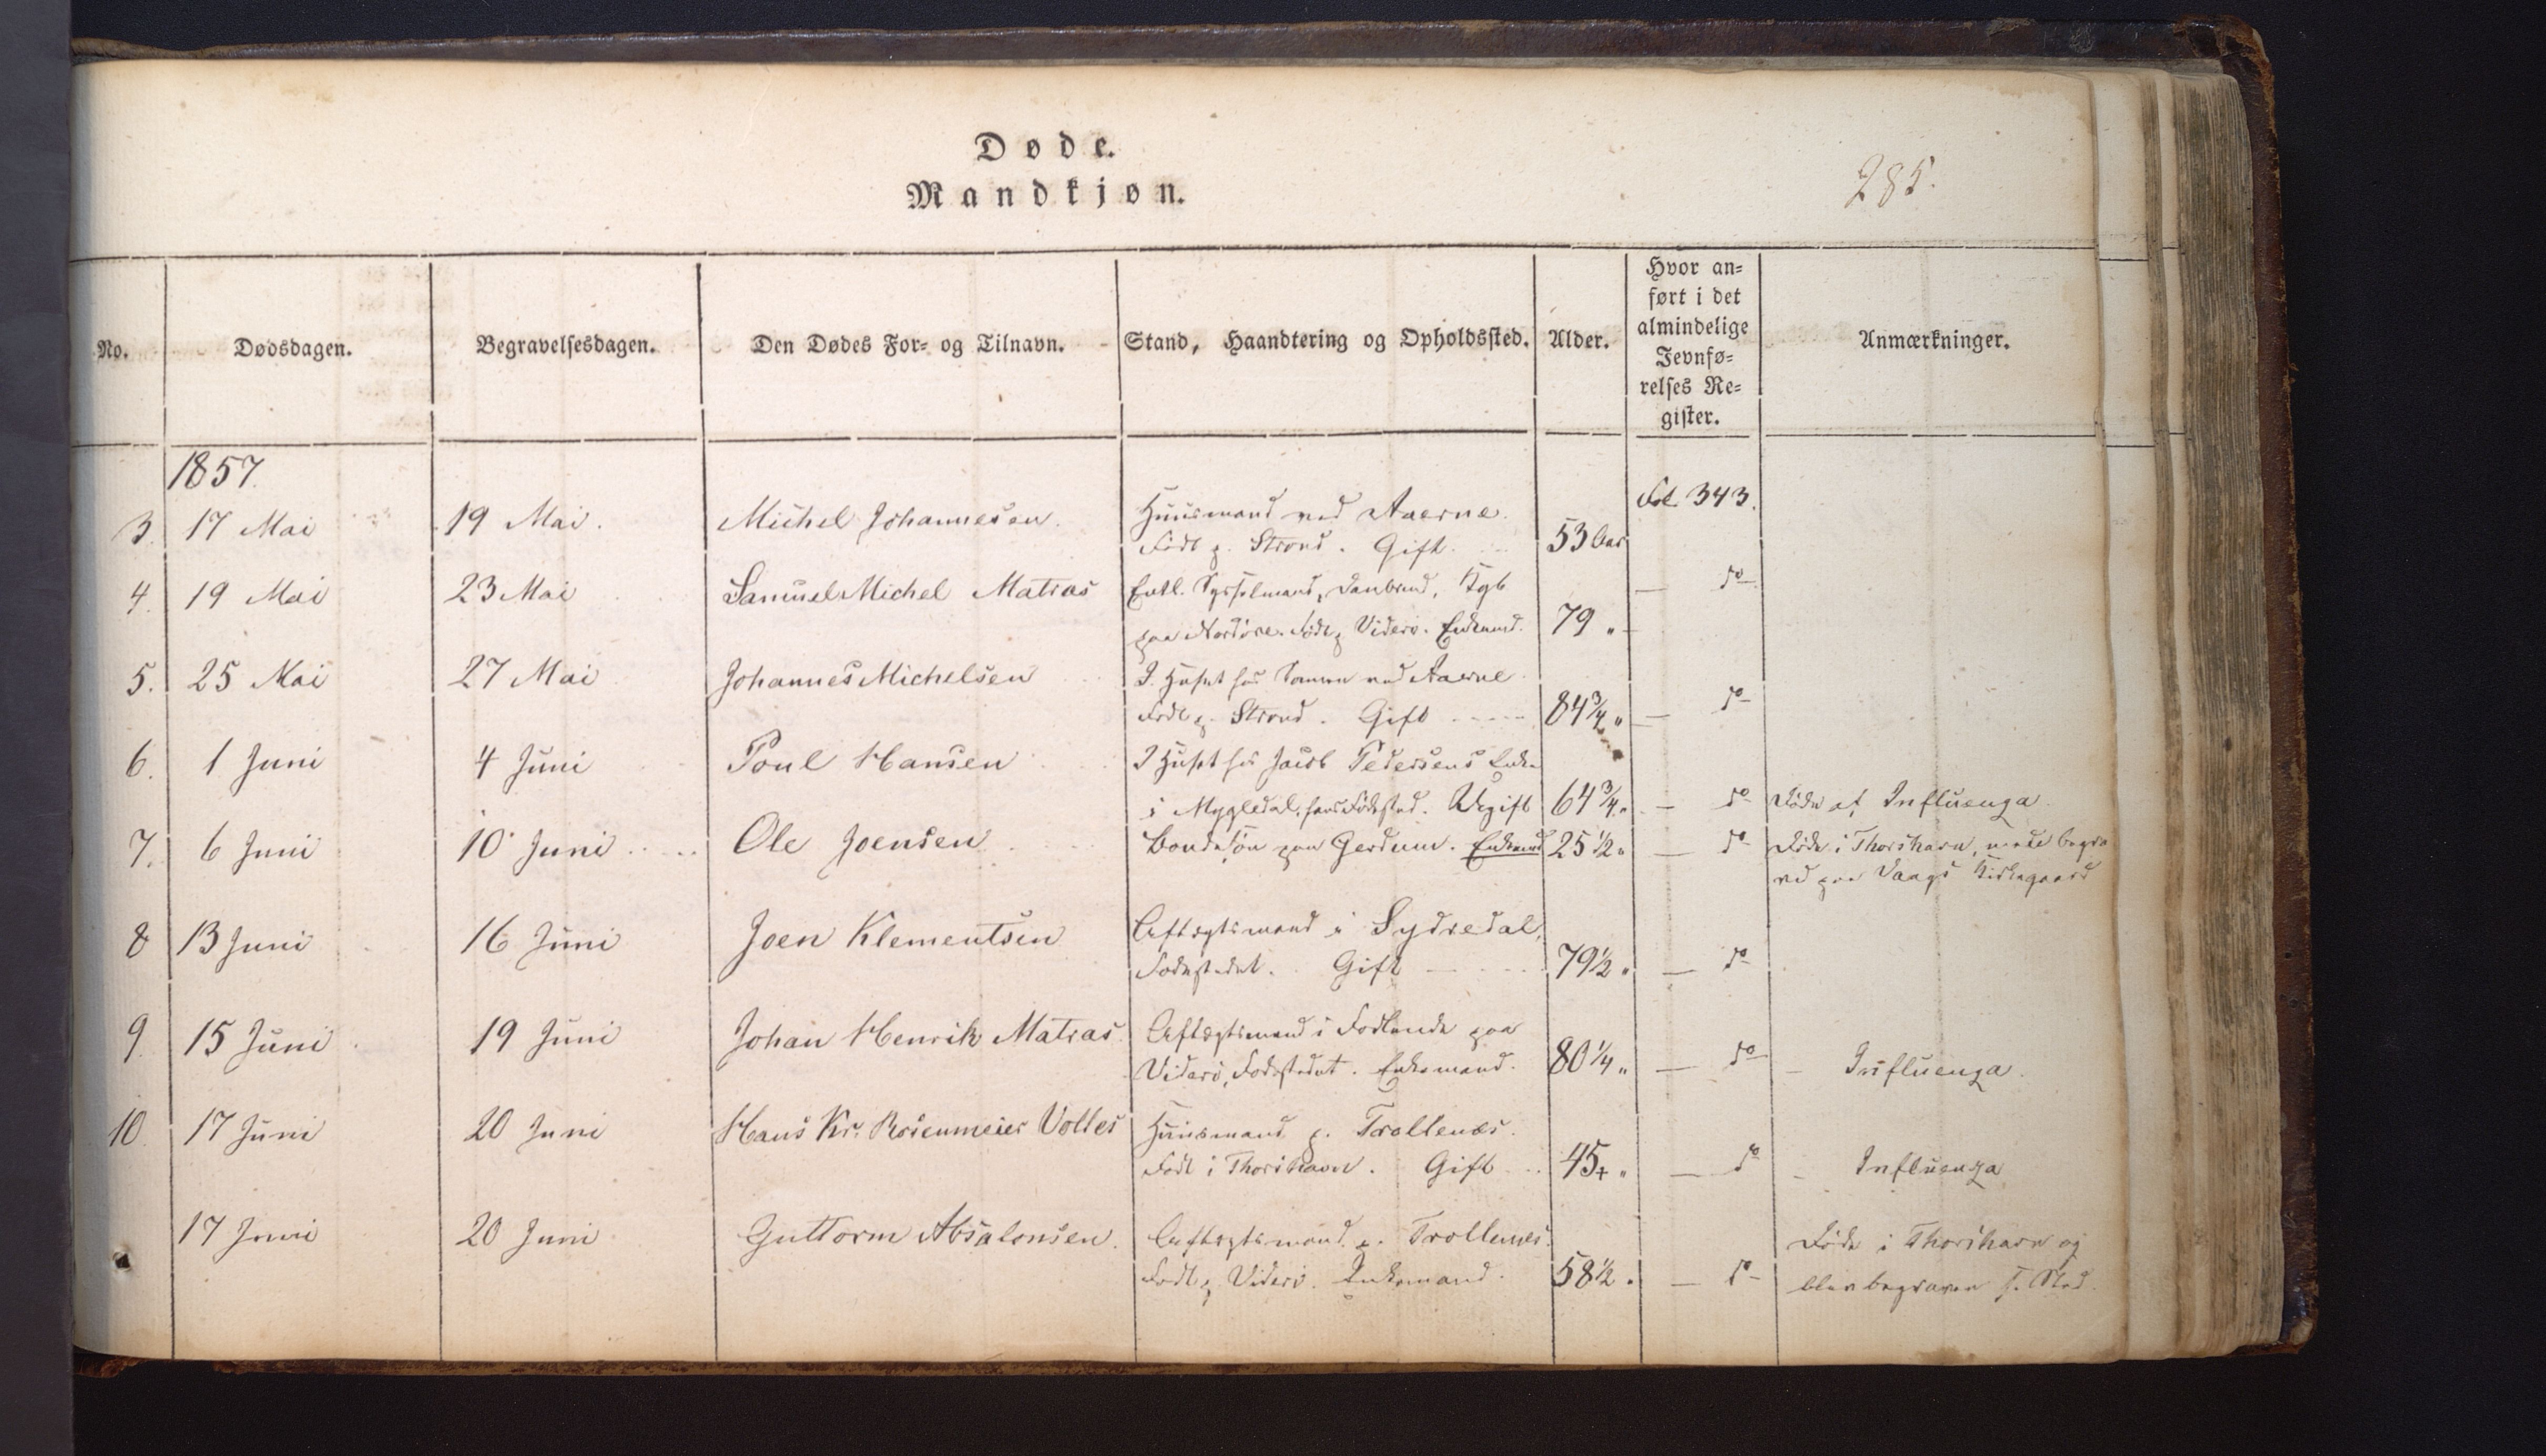 Døde.
Mandkjøn.
285.
No.
Dødsdagen.
Begravelsesdagen.
Den Dødes For- og Tilnavn.
Stand, Haandtering og Opholdssted.
Alder.
Hvor an-
ført i det
almindelige
Jevnfø-
relses Re-
gister.
Anmærkninger.
1857.
3. 17 Mai 19 Mai. Michel Johannesen. Huusmand ved Aaerne. Fol. 343.
Født p. Strond. Gift. 53 Aar
4. 19 Mai 23 Mai Samuel Michel Matras Entl. Sysselmand, Danbrmd,
paa Nordöre. Född p Viderö. Enkemd. 79 " do
5. 25 Mai 27 Mai Johannes Michelsen I. Huset hos Sønnen ved Aaerne
Født p. Strond. Gift 84 3/4 " do
6. 1 Juni 4 Juni Poul Hansen I Huset hos Jacob Pedersens Enke
i Mygledal, hans Fødested. Ugift 64 3/4 " do Døde af Influenza.
7. 6 Juni 10 Juni Ole Joensen Bondesön paa Gerdum. Enkemd 25 1/2 " do Døde i Thorshavn, men
paa Vaags Kirkegaard
8 13 Juni 16 Juni Joen Klementsen Aftægtsmand i Sydredal,
Fødestedet. Gift 79 1/2 " do
9 15 Juni 19 Juni Johan Henrik Matras Aftægtsmand i paa
Viderö, Fødestedet. Enkemand. 80 1/4 " do - Influenza.
10. 17 Juni 20 Juni Hans Kr. Rosenmeier Voltes Huusmand p. Trollenæs.
Født i Thorshavn. Gift 45+ " do - Influenza
17 Juni 20 Juni Guttorm Absalonsen. Aftægtsmand p. Trollenæs. Døde i Thorshavn og
Født p Viderö. Enkemand. 58 1/2 " do blev begraven s. Sted.